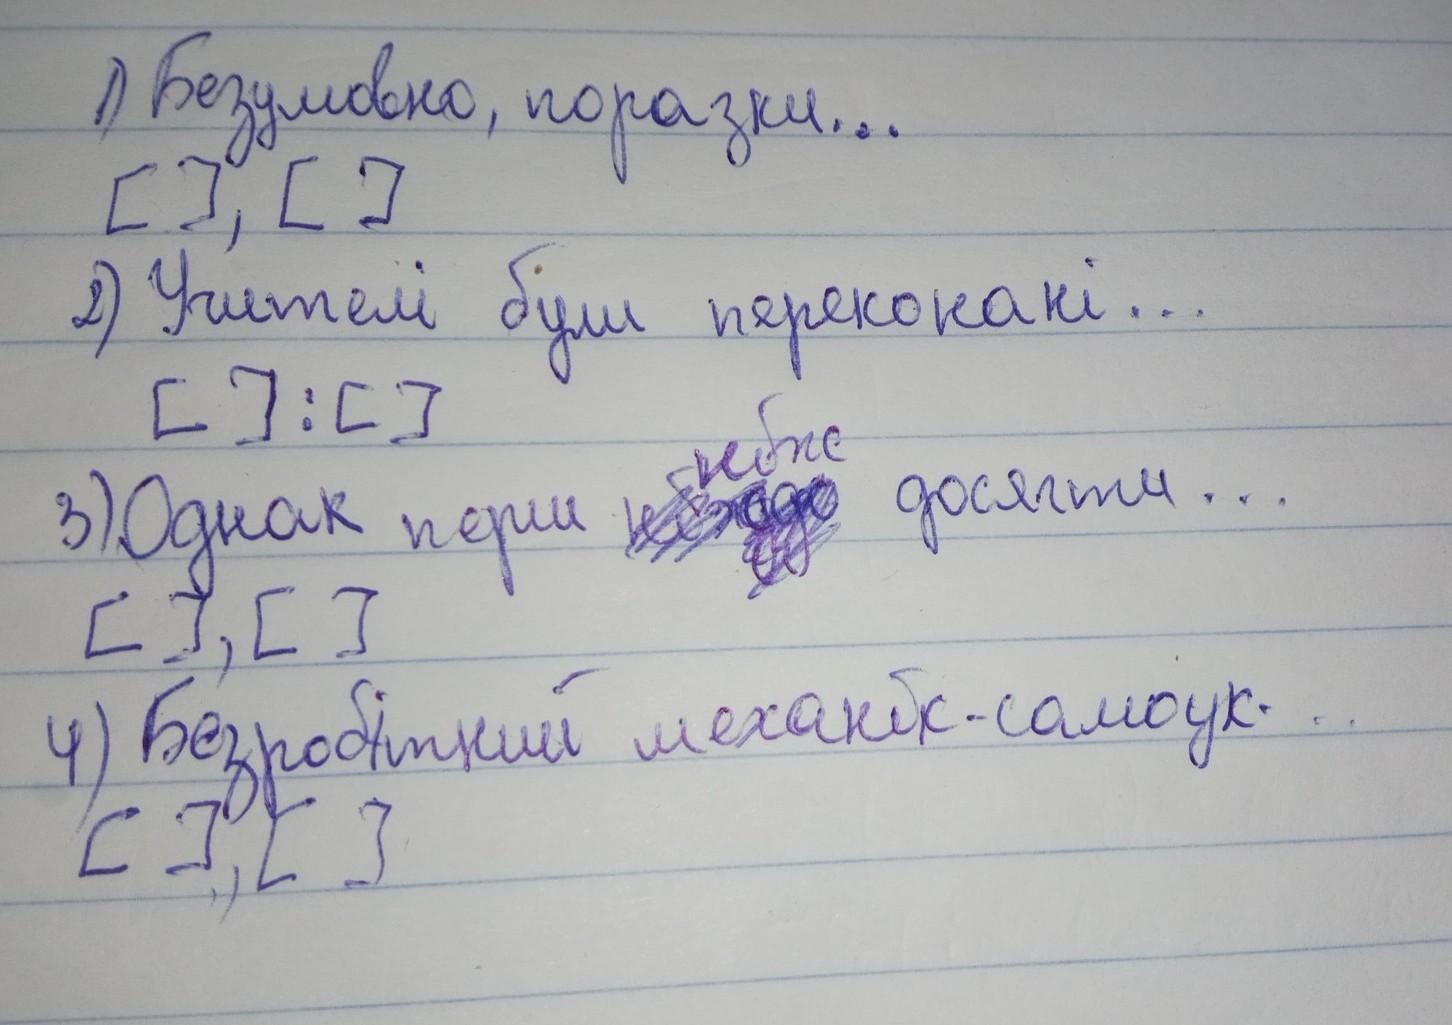 1) Безумовно, поразки...
[ ], [ ]
2) Учителі були переконані...
[ ]:[ ]
3) Однак перш ніж досягти...
[ ], [ ]
4) Безробітний механік-самоук...
[ ], [ ]